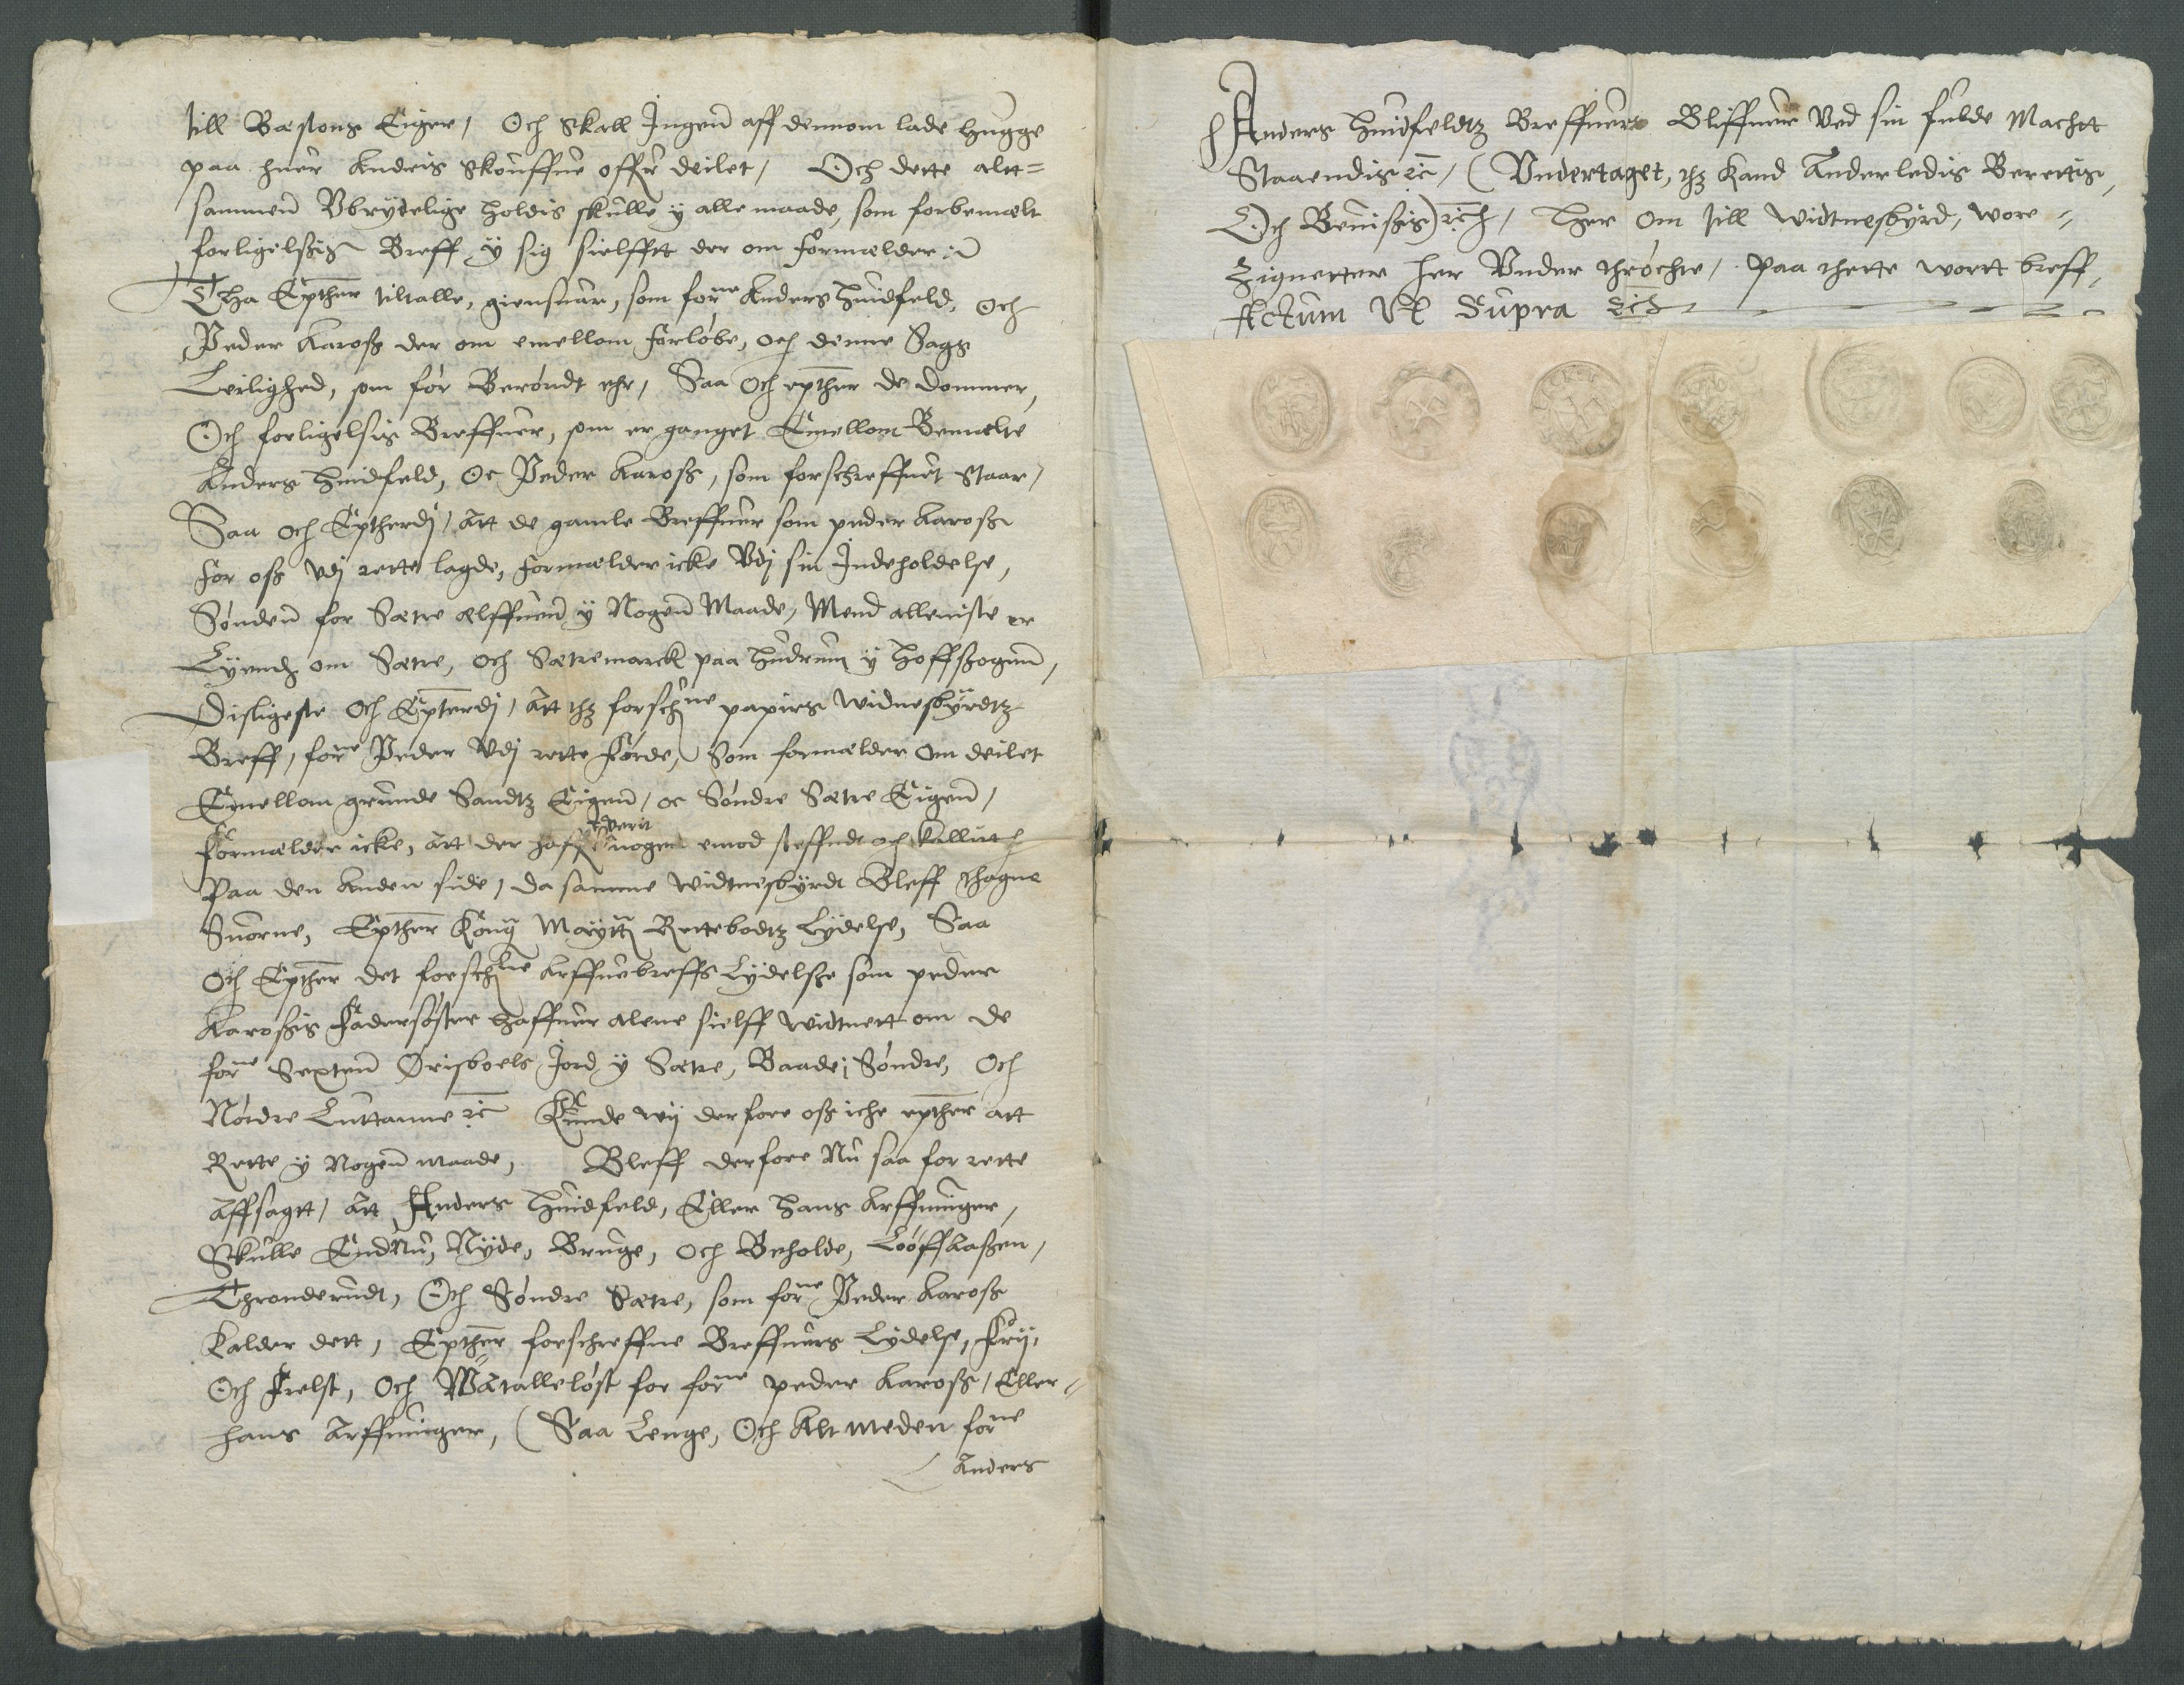 till Bastons Eiger, Och skall Ingen aff dennom lade hugge
paa huer Andris skouffue offuer deilet, Och dette alt=
sammen Vbrydelige holdis skulle ÿ alle maade, som forbemælt
forligelßis Breff ÿ sig sielfftt der om formælder :/
Tha Epther tiltalle, giensuar, som forne Anders Huidfeld, Och
Peder Kaross der om emellom forløbe, och denne Sags
Leilighed, som før Berøndt ehr, Saa och epther de Dommer,
Och forligelsis Breffuer, som er ganget Emellom Bemælte
Anders Huidfeld, Oc Peder Kaross, som forschreffuet staar,
Saa och Eptherdj, Att de gamle Breffuer som peder Kaross
for oss Vdj rette lagde, formælder icke Vdj sin Indeholdelse,
Sønden for Sætre ælffuen ÿ Nogen Maade, Mend alleniste er
Lÿends om Sætre, Och Sætremarck paa Hudrum ÿ Hoffßogenn,
Disligeste Och Epterdj, Att thz forschne papirs widnesbÿrdtz
Breff, forne Peder Vdj rette førde, Som formælder Om deilet
Emellom grunde Sandtz Eigen, oc Søndre Sætre Eigen,
Formælder icke, Att der haffr werit nogen emod steffndt och kallut
Paa den Anden side, Da samme widtnesbÿrdt Bleff thagne
Suorne, Epther Kong Maytz Rettebodtz Lÿdelse, Saa
Och Epther det forschne Arffuebreffs Lÿdelsze som peder
Karossis Fadersøster haffuer alene sielff widtnett om de
forne Sexten Ørisboels Jord ÿ Sætre, Baade Søndre, Och
Nordre Luttanne etc Kunde wij derfore oss iche epther att
Rette ÿ Nogen maade, Bleff derfore Nu saa for rette
Affsagtt, Att Anders Huidfeld, Eller Hans Arffuinger,
Skulle EndNu, Nÿde, Bruge, Och Beholde, Looffaaßen,
Thronderudt, Och Søndre Sætre, som forne Peder Kaross
Kalder dett, Epther forschreffne Breffuers Lÿdelse, Frij,
Och Frelst, Och Wåtalleløst for forne peder Kaross, Eller
hans Arffuinger, (Saa Lenge, Och Alt meden forne
Anders
Anders Huidfeldtz Breffuer Bliffuer Ved sin fulde Machtt
Staaendis etc, (Vndertaget, thz kand Anderledis Berettis,
Och Beuissis) etc, Her om till widtnesbÿrd, wore
Zignetter her Vnder thrøchte, paa thette wortt breff,
Actum Ut Supra etc